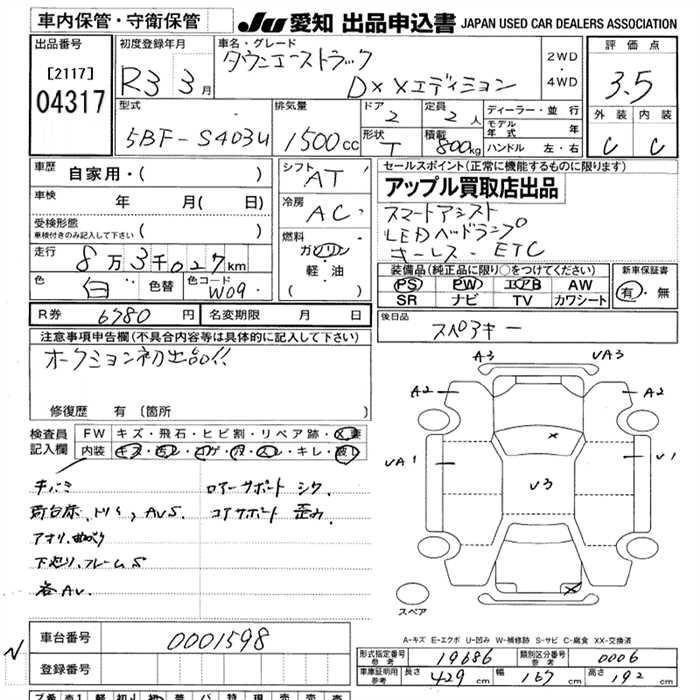 車内保管・守衛保管 JU 愛知 出品申込書 JAPAN USED CAR DEALERS ASSOCIATION
出品番号 初度登録年月 車名・グレード 評価点
[2117] R3 3月 タウンエーストラック 2WD・4WD 3.5
04317 DXXエディション
型式 排気量 ドア 定員 ディーラー・並行 外装 内装
5BF-S403U 1500cc 2 2人 モデル年式 年 C C
形状 積載 ハンドル 左・右
T 800kg
車歴 自家用・( ) シフト AT セールスポイント(正常に機能するものに限ります)
車検 年 月( 日) 冷房 AC アップル買取店出品
受検形態 車検付きのみ記入して下さい ( ) 燃料 スマートアシスト
走行 8万3千027km ガソリン LEDヘッドランプ
色 白 色替 色コード W09 軽・油 キーレス・ETC
( ) 装備品(純正品に限り○をつけてください) 新車保証書
PS PW エアB AW 有・無
SR ナビ TV カワシート
R券 6780円 名変期限 月 日 後日品
スペアキー
注意事項申告欄(不具合内容等は具体的に記入して下さい)
オークション初出品!!
修復歴 有 [箇所 ]
検査員記入欄 FW キズ・飛石・ヒビ割・リペア跡・X要
内装 キズ・汚レ・コゲ・穴・スレ・キレ・破レ
A3 UA3
A2 A2
UA1 1
U3
X
X
スペア
キバミ ロアーサポート シワ
荷台床、トリイ、AUS コアサポート 歪み
アオリ、曲がり
下廻り、フレームS
各AU
A-キズ E-エクボ U-凹み W-補修跡 S-サビ C-腐食 XX-交換済
車台番号 0001598 形式指定番号 参考 19686 類別区分番号 参考 0006
登録番号 車庫証明用 参考 長さ 429cm 幅 167cm 高さ 192cm